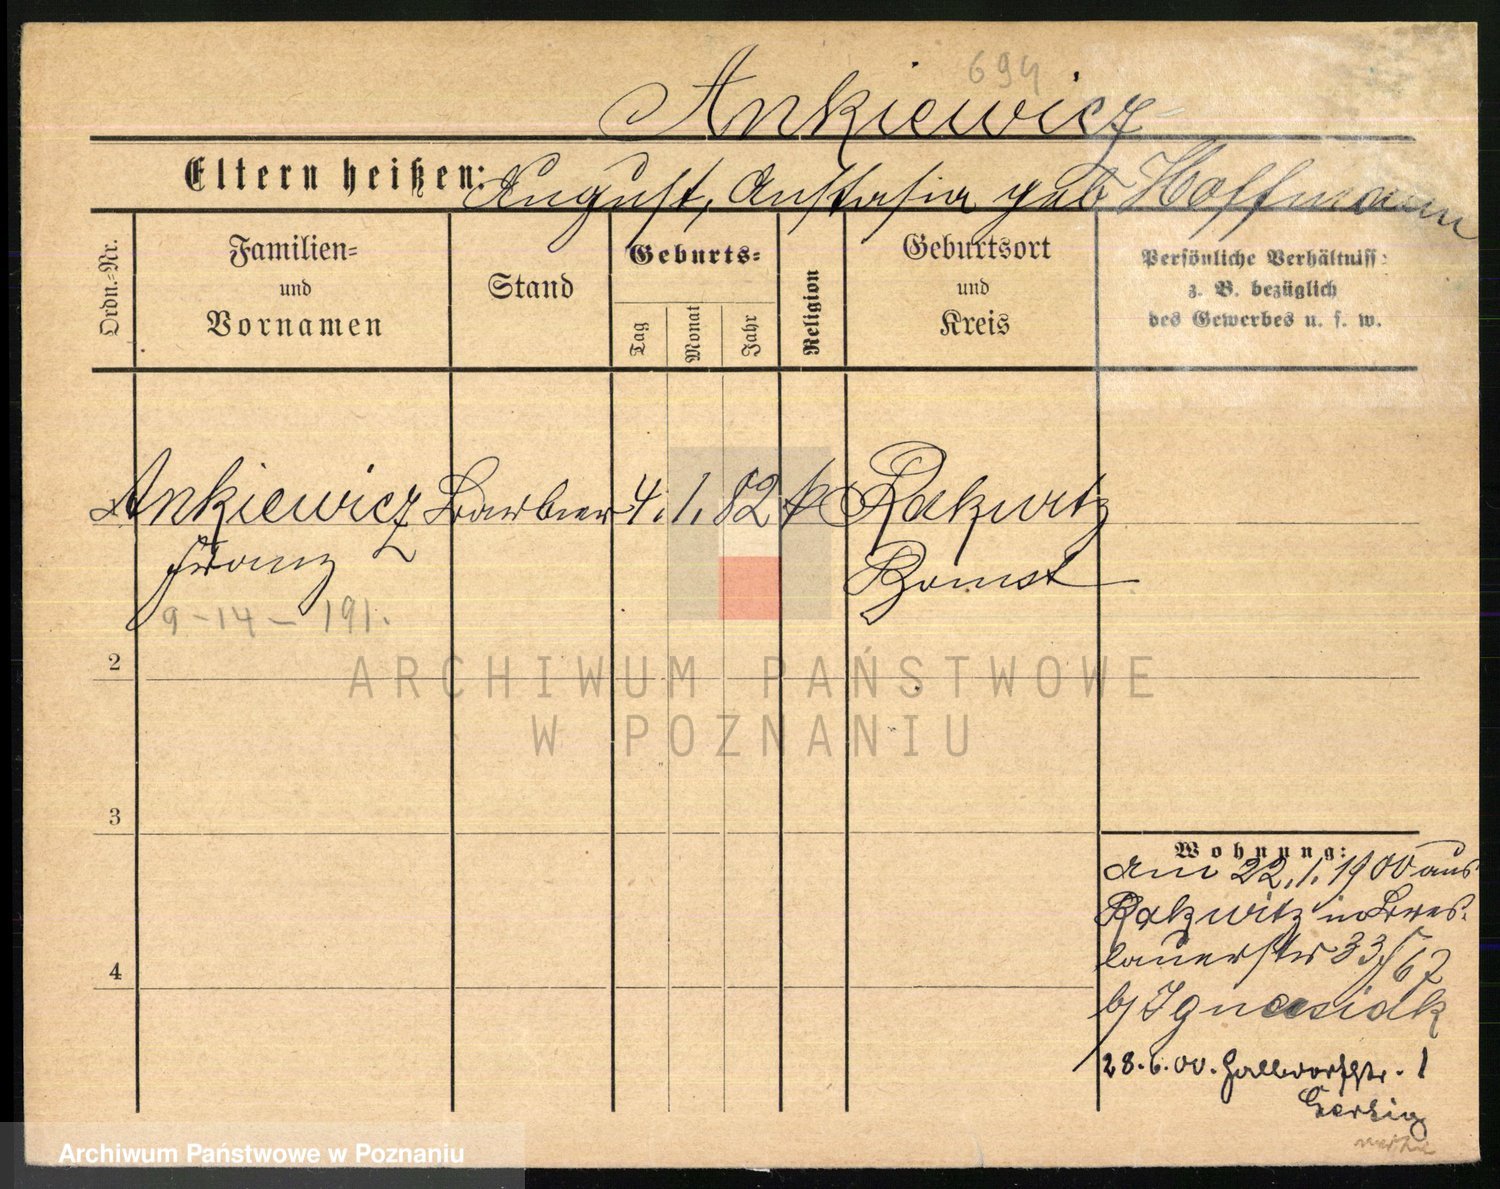 694
Ankiewicz
Eltern heißen: August, Anstasia geb Hoffmann
Ordn.-Nr.
Familien-
und
Vornamen
Stand
Geburts-
Tag
Monat
Jahr
Religion
Geburtsort
und
Kreis
Persönliche Verhältniss:
z. B. bezüglich
des Gewerbes u. s. w.
Ankiewicz Barbier 4. 1. 82 k Rakwitz
Franz Bomst
9-14-191.
2
3
4
ARCHIWUM PAŃSTWOWE
W POZNANIU
Wohnung:
am 22.1.1900 aus
Rakwitz in Bres-
lauerstr 33/
b/ Ignasiak
28.6.00. Halldorfstr. 1
Archiwum Państwowe w Poznaniu